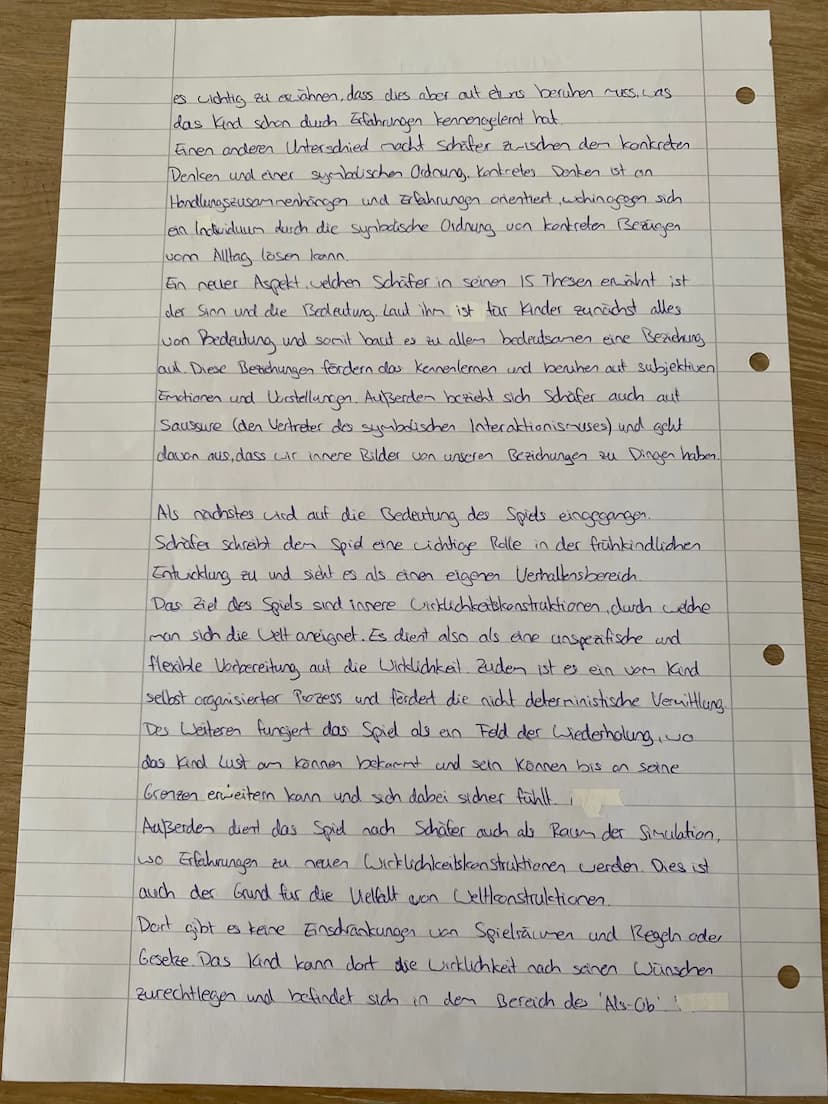 es wichtig zu erwähnen, dass dies aber auf etwas beruhen muss, was
das Kind schon durch Erfahrungen kennengelernt hat.
Einen anderen Unterschied macht Schäfer zwischen dem konkreten
Denken und einer symbolischen Ordnung. Konkretes Denken ist an
Handlungszusammenhängen und Erfahrungen orientiert, wohingegen sich
ein Individuum durch die symbolische Ordnung von konkreten Bezügen
vom Alltag lösen kann.
Ein neuer Aspekt, welchen Schäfer in seinen 15 Thesen erwähnt ist
der Sinn und die Bedeutung. Laut ihm ist für Kinder zunächst alles
von Bedeutung und somit baut es zu allem bedeutsamen eine Beziehung
auf. Diese Beziehungen fördern das Kennenlernen und beruhen auf subjektiven
Emotionen und Vorstellungen. Außerdem bezieht sich Schäfer auch auf
Saussure (den Vertreter des symbolischen Interaktionismuses) und geht
davon aus, dass wir innere Bilder von unseren Beziehungen zu Dingen haben.

Als nächstes wird auf die Bedeutung des Spiels eingegangen.
Schäfer schreibt dem Spiel eine wichtige Rolle in der frühkindlichen
Entwicklung zu und sieht es als einen eigenen Verhaltensbereich.
Das Ziel des Spiels sind innere Wirklichkeitskonstruktionen, durch welche
man sich die Welt aneignet. Es dient also als eine unspezifische und
flexible Vorbereitung auf die Wirklichkeit. Zudem ist es ein vom Kind
selbst organisierter Prozess und fördert die nicht deterministische Vermittlung.
Des Weiteren fungiert das Spiel als ein Feld der Wiederholung, wo
das Kind Lust am Können bekommt und sein Können bis an seine
Grenzen erweitern kann und sich dabei sicher fühlt.
Außerdem dient das Spiel nach Schäfer auch als Raum der Simulation,
wo Erfahrungen zu neuen Wirklichkeitskonstruktionen werden. Dies ist
auch der Grund für die Vielfalt von Weltkonstruktionen.
Dort gibt es keine Einschränkungen von Spielräumen und Regeln oder
Gesetze. Das Kind kann dort die Wirklichkeit nach seinen Wünschen
zurechtlegen und befindet sich in dem Bereich des 'Als-Ob'!